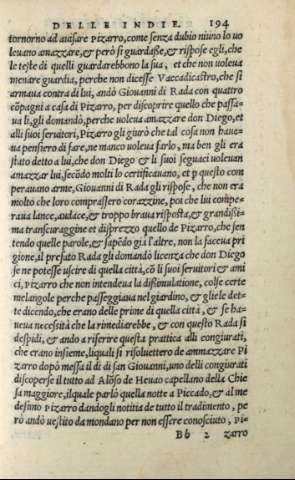 DELLE INDIE. 194
tornorno ad auisare Pizarro, come senza dubio niuno lo uo
leuano amazzare, & però si guardasse, & rispose egli, che
le teste di quelli guardarebbono la sua, et che non uoleua
menare guardia, perche non dicesse Vaccadicastro, che si
armaua contra di lui, andò Giouanni di Rada con quattro
cōpagni a casa di Pizarro, per discoprire quello che passa=
ua lì, gli domandò, perche uoleua amazzare don Diego, et
alli suoi seruitori, Pizarro gli giurò che tal cosa non haue=
ua pensiero di fare, ne manco uoleua farlo, ma ben gli era
stato detto a lui, che don Diego & li suoi seguaci uoleuan
amazzar lui, secōdo molti lo certificauano, et p questo com
perauano arme, Giouanni di Rada gli rispose, che non era
molto che loro comprassero corazzine, poi che lui compe=
raua lance, audace, & troppo braua risposta, & grandissi=
ma transcuraggine et disprezzo quello de Pizarro, che sen
tendo quelle parole, & sapēdo già l'altre, non la faceua pri
gione, il prefato Rada gli domandò licenza che don Diego
se ne potesse uscire di quella città, cō li suoi seruitori & ami
ci, Pizarro che non intendeua la dissimulatione, colse certe
melangole perche passeggiaua nel giardino, & glie le det=
te dicendo, che erano delle prime di quella città, & se ha=
ueua necessità che la rimediarebbe, & con questo Rada si
despidi, & andò a riferire questa pratica alli congiurati,
che erano insieme, liquali si risoluettero de ammazzare Pi
zarro dopò messa il dì di san Giouanni, uno delli congiurati
discoperse il tutto ad Alōso de Heuao capellano della Chie
sa maggiore, ilquale parlò quella notte a Piccado, & al me
desimo Pizarro dandogli notitia de tutto il tradimento, pe
rò andò uestito da mondano per non essere conosciuto, Pi=
Bb 2 zarro